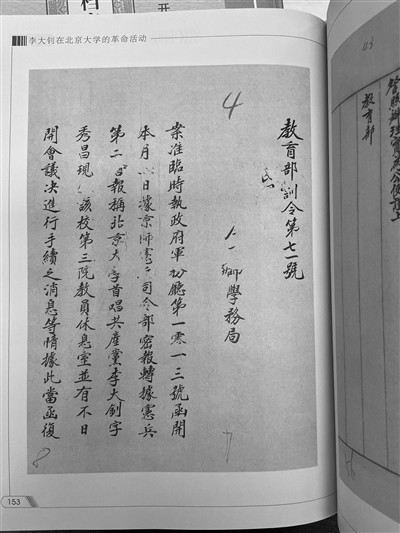 李大钊在北京大学的革命活动
4
教育部訓令第七一號
學務局
案准臨時執政府軍廳第一零一三號函開
本月日據京師憲司令部密報轉據憲兵
第二報稱北京大學首唱共產黨李大釗字
秀昌現該校第三院教員休息室並有不日
開會議決進行手續之消息等情據此當函復
8
7
153
教育部